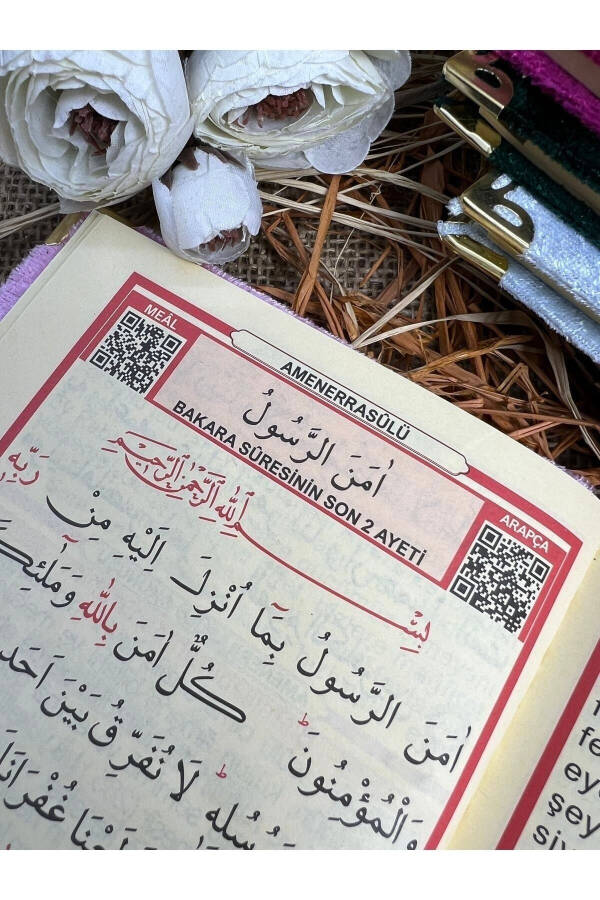 MEÂL
AMENERRASÛLÜ
اٰمَنَ الرَّسُولُ
BAKARA SÛRESİNİN SON 2 AYETİ
ARAPÇA
بِسْمِ اللّٰهِ الرَّحْمٰنِ الرَّحِيمِ
اٰمَنَ الرَّسُولُ بِمَٓا اُنْزِلَ اِلَيْهِ مِنْ رَبِّهٖ
وَالْمُؤْمِنُونَ ۜ كُلٌّ اٰمَنَ بِاللّٰهِ
لَا نُفَرِّقُ بَيْنَ
şey